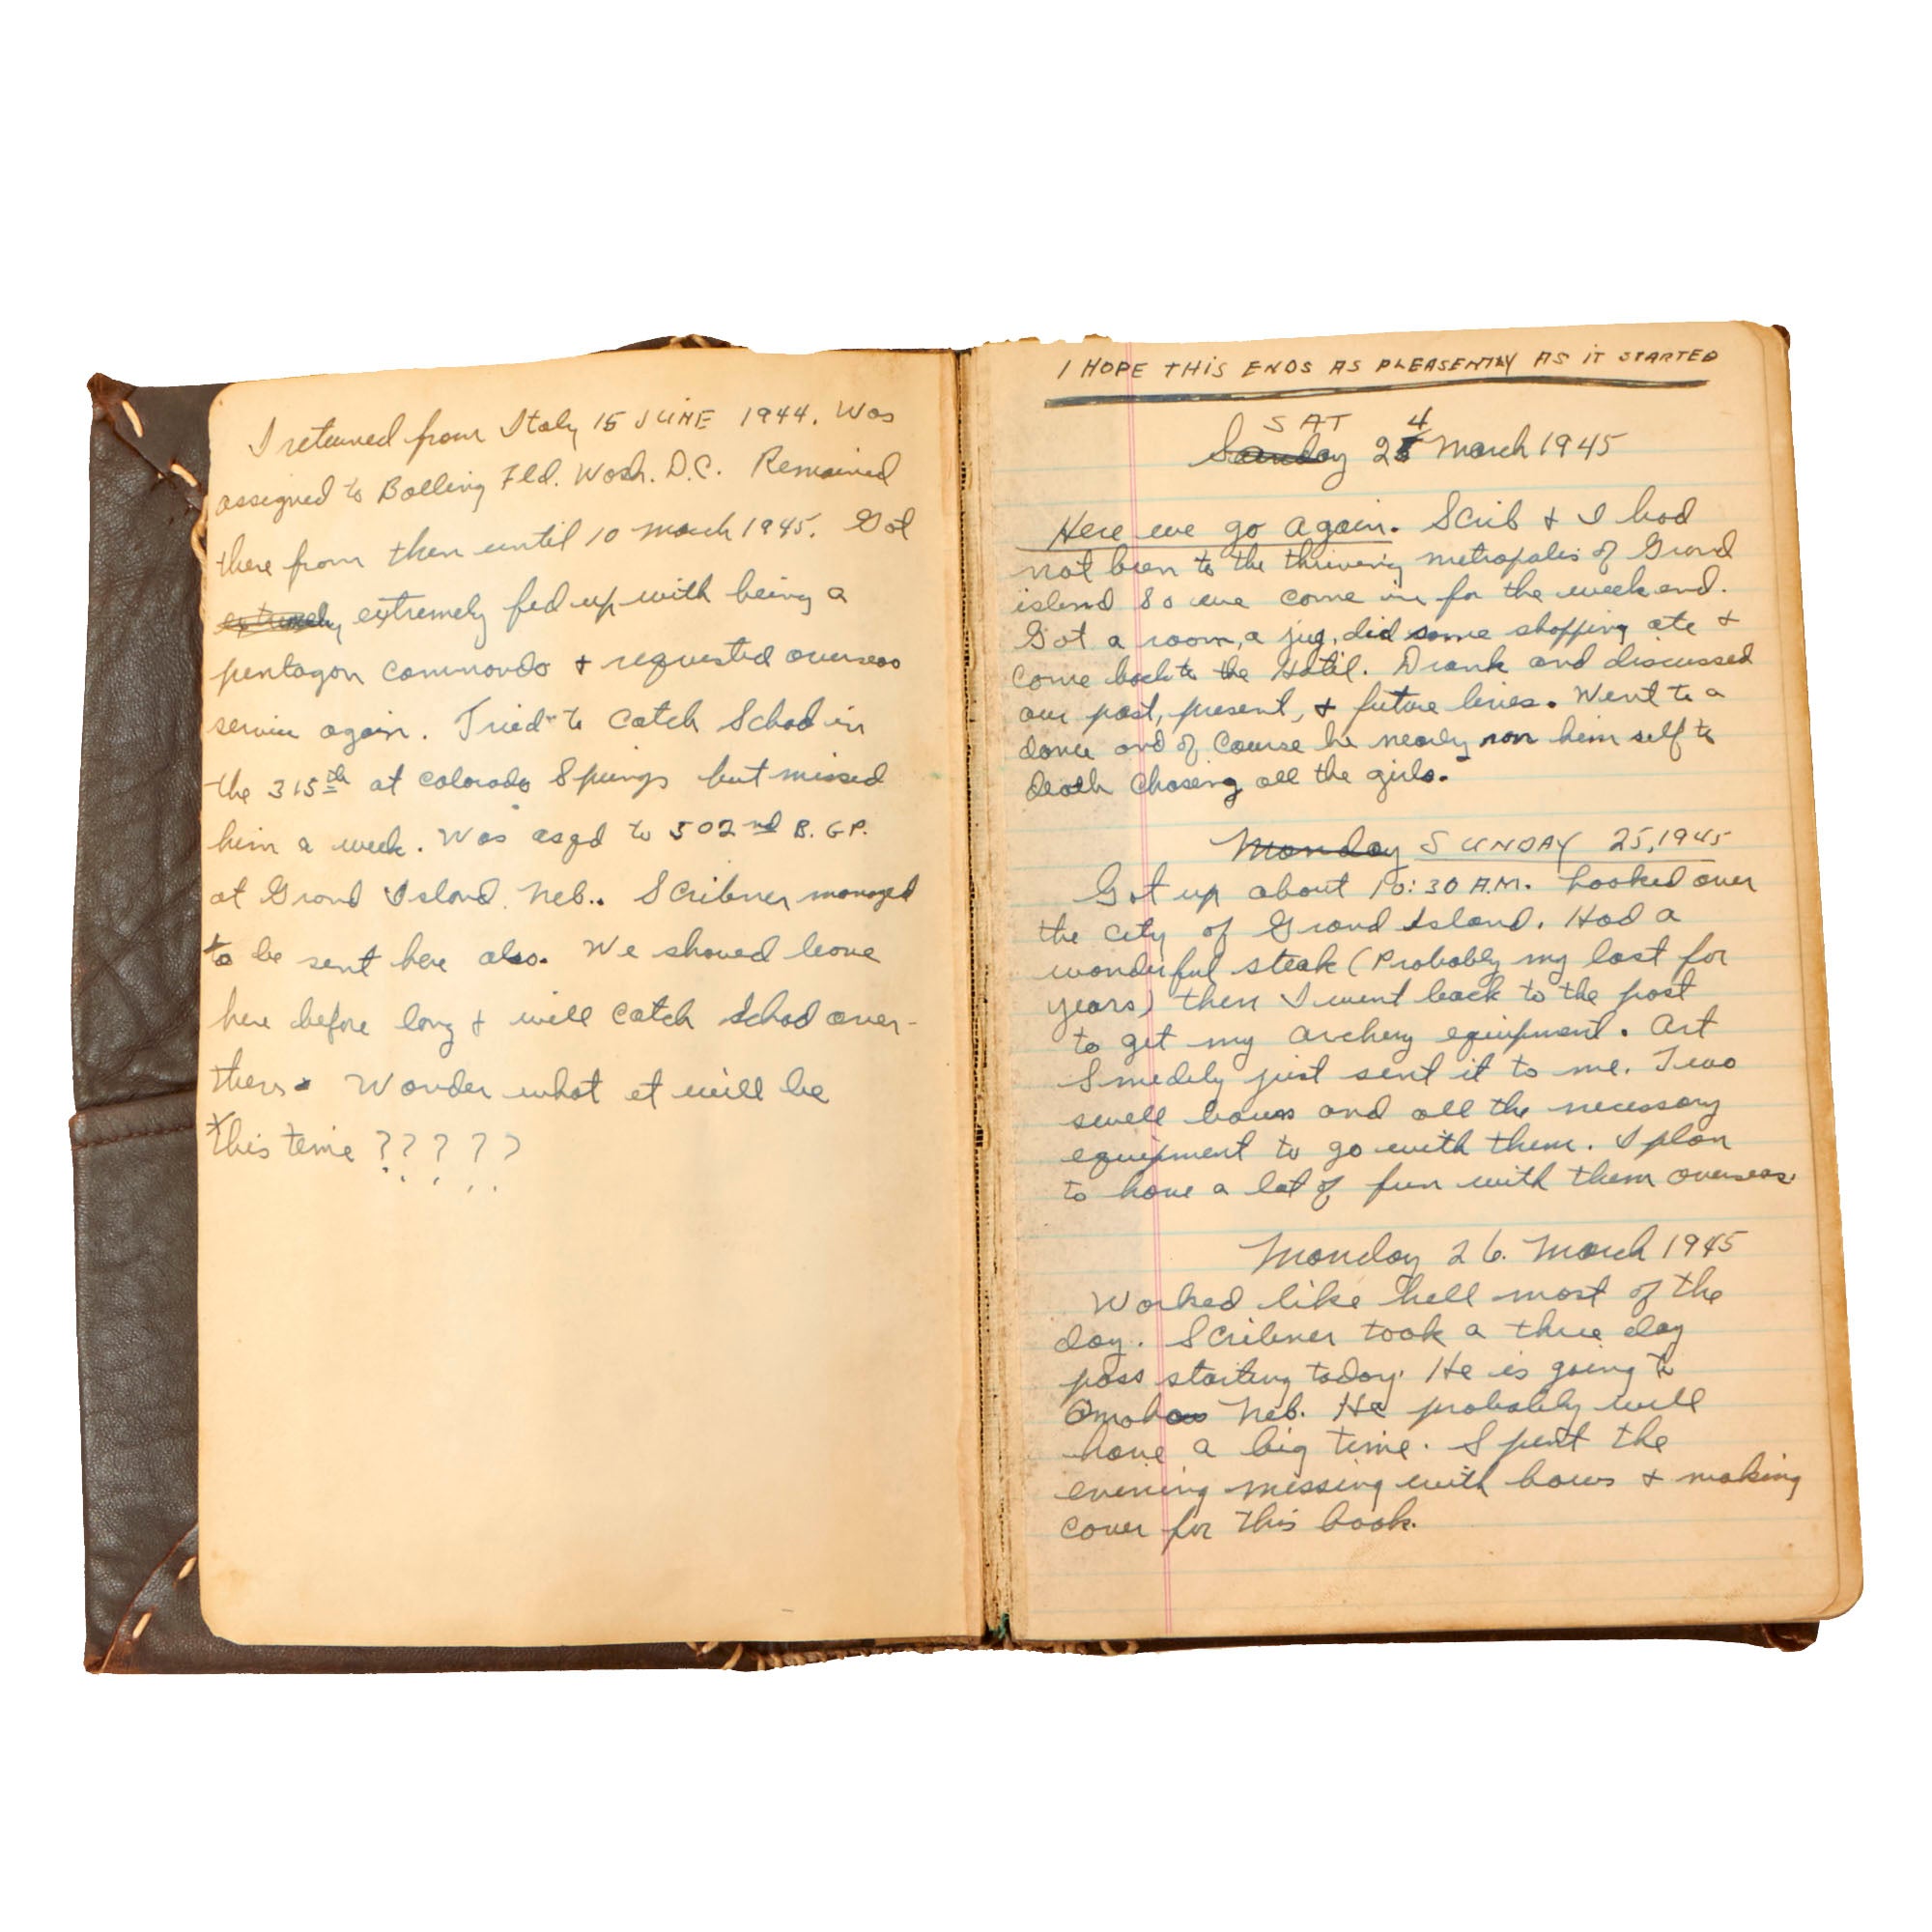 I returned from Italy 15 JUNE 1944. Was
assigned to Bolling Fld. Wash. D.C. Remained
there from then until 10 March 1945. Got
extremely extremely fed up with being a
pentagon commando & requested overseas
service again. Tried to catch Schad in
the 315th at Colorado Springs but missed
him a week. Was asgd to 502nd B. GP.
at Grand Island, Neb.. Scribner managed
to be sent here also. We should leave
here before long & will catch Schad over-
there. Wonder what it will be
this time ?????
I HOPE THIS ENDS AS PLEASENTLY AS IT STARTED
SAT 4
Sunday 25 March 1945
Here we go again. Scrib & I had
not been to the thriving metropolis of Grand
island so we come in for the weekend.
Got a room, a jug, did some shopping ate &
come back to the Hotel. Drank and discussed
our past, present, & future lives. Went to a
dance and of course he nearly ran him self to
death chasing all the girls.
Monday SUNDAY 25, 1945
Got up about 10:30 A.M. Looked over
the city of Grand Island. Had a
wonderful steak (Probably my last for
years) then I went back to the post
to get my archery equipment. Art
Smedely just sent it to me. Two
swell bows and all the necessary
equipment to go with them. I plan
to have a lot of fun with them overseas.
Monday 26. March 1945
Worked like hell most of the
day. Scribner took a three day
pass starting today. He is going to
Omaha Neb. He probably will
have a big time. Spent the
evening messing with bows & making
cover for this book.